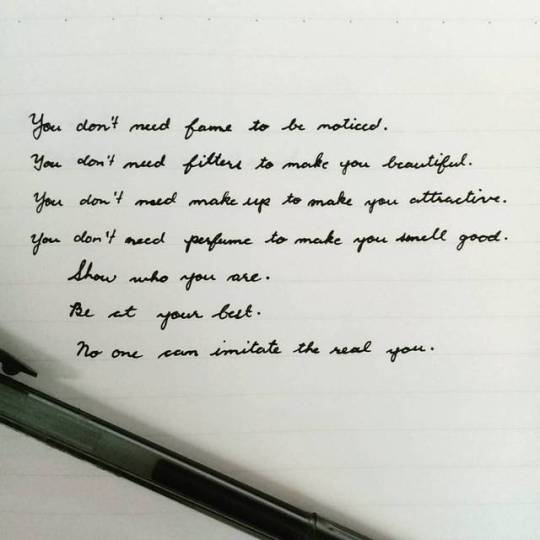 You don't need fame to be noticed.
You don't need filters to make you beautiful.
You don't need make up to make you attractive.
You don't need perfume to make you smell good.
Show who you are.
Be at your best.
No one can imitate the real you.